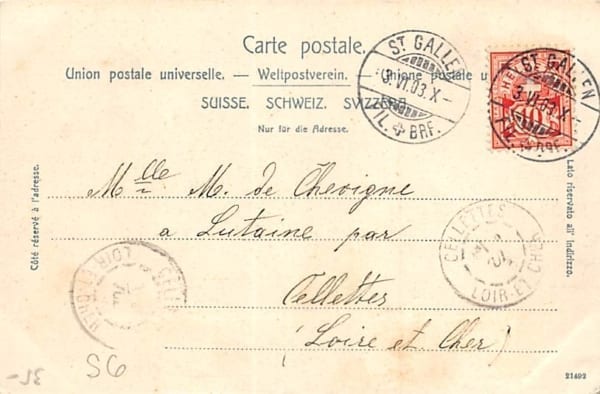 Carte postale.
Union postale universelle. — Weltpostverein. — Unione postale u
SUISSE. SCHWEIZ. SVIZZERA
Nur für die Adresse.
ST. GALLEN
3.VI.03.X-
BRF.
ST. GALLEN
3.VI.03.X-
BRF.
10
Côté réservé à l'adresse.
Lato riservato all' indirizzo.
Mlle M. de Chevigne
a Lutaine par
Cellettes
(Loire et Cher)
CELLETTES
LOIR-ET-CHER
LOIR-ET-CHER
S6
35-
21492